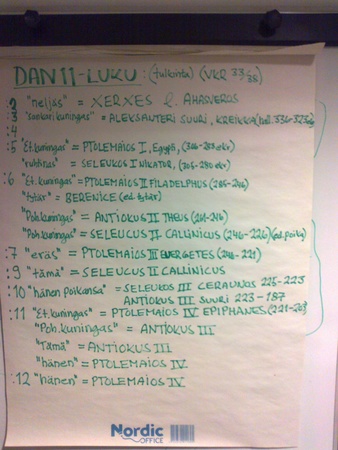 DAN 11-LUKU: (tulkinta) (VKR 33/38)
:2 "neljäs" = XERXES l. AHASVEROS
:3 "sankari kuningas" = ALEKSANTERI SUURI, KREIKKA
:4
:5 "Et.kuningas" = PTOLEMAIOS I, Egypti,
"ruhtinas" = SELEUKOS I NIKATOR, (305-280 ekr)
:6 "Et.kuningas" = PTOLEMAIOS II FILADELPHUS (285-246)
"tytär" = BERENICE (ed. tytär)
"Poh.kuningas" = ANTIOKUS II THEUS (261-246)
"Poh.kuningas" = SELEUCUS II CALLINICUS (246-226) (ed. poika)
:7 "eräs" = PTOLEMAIOS III EVERGETES (246-221)
:9 "tämä" = SELEUCUS II CALLINICUS
:10 "hänen poikansa" = SELEUKOS III CERAUNOS 225-223
ANTIOKUS III SUURI 223-187
:11 "Et.kuningas" = PTOLEMAIOS IV EPIPHANES (221-203)
"Poh.kuningas" = ANTIOKUS III
"Tämä" = ANTIOKUS III
"hänen" = PTOLEMAIOS IV
:12 "hänen" = PTOLEMAIOS IV
Nordic
OFFICE